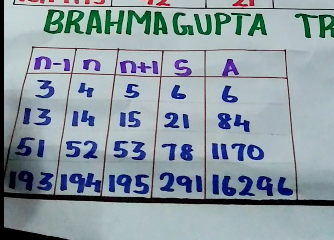 BRAHMAGUPTA TR
n-1 n n+1 S A
3 4 5 6 6
13 14 15 21 84
51 52 53 78 1170
193 194 195 291 16296